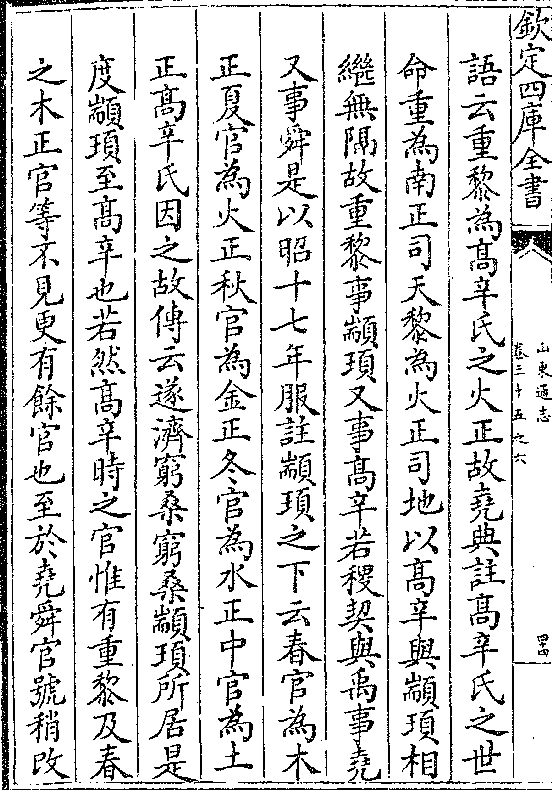 欽定四庫全書
山東通志
卷三十五之六
四四
語云重黎為髙辛氏之火正故堯典註髙辛氏之世
命重為南正司天黎為火正司地以髙辛與顓頊相
繼無隔故重黎事顓頊又事髙辛若稷契與禹事堯
又事舜是以昭十七年服註顓頊之下云春官為木
正夏官為火正秋官為金正冬官為水正中官為土
正髙辛氏因之故傳云遂濟窮桑窮桑顓頊所居是
度顓頊至髙辛也若然髙辛時之官惟有重黎及春
之木正官等不見更有餘官也至於堯舜官號稍改